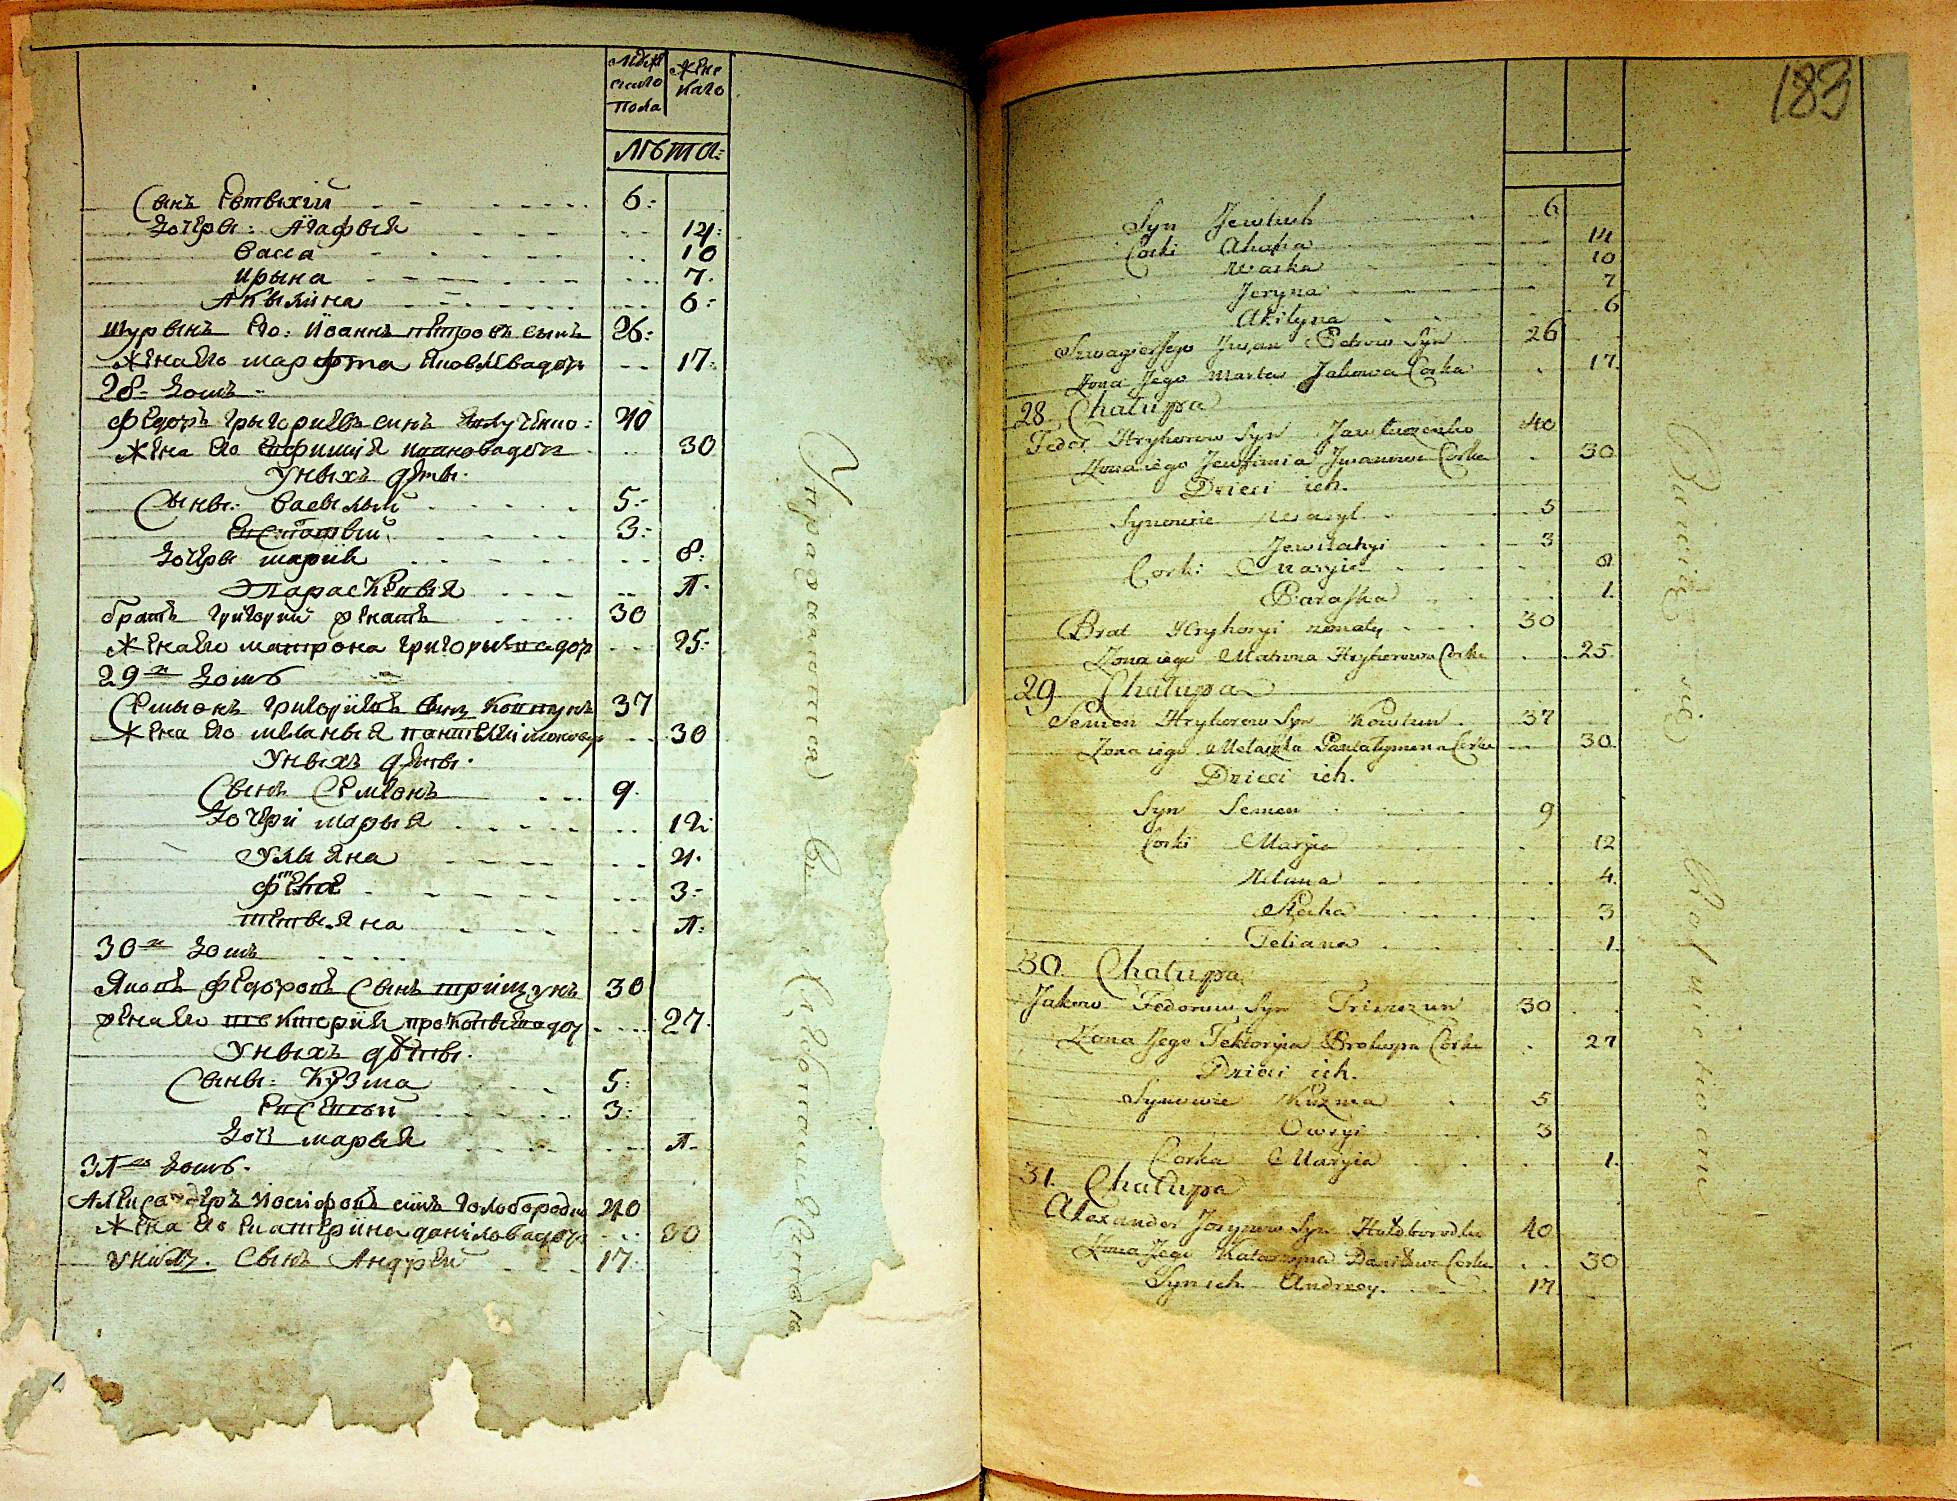 Мужескаго пола Женскаго
Лѣта:
Сынъ Евтыхій 6:
Дочеры: Агафыя 14:
Васса 10
Ирына 7.
Акилина 6:
Шурынъ Его: Иоаннъ Петровъ сынъ 26:
Жена Его Марфта Яковлева дочь 17:
28. Домъ
Федоръ Григориевъ синъ 40
Жена Его Евфимия Иванова дочь 30
У ныхъ дѣты.
Сыны: Васылый 5:
Евстафый 3:
Дочеры Мария 8:
Параскевыя 1.
братъ Григорий женатъ 30
Жена Его Матрона Григорыева дочь 25:
29 Домъ
Семыонъ Григориевъ Сынъ Ковтунъ 37
Жена Его Меланыя Пантелиимонова дочь 30
У ныхъ дѣты.
Сынъ Семионъ 9.
Дочери Марыя 12
Улыяна 4.
Фетка 3:
Тетыяна 1.
30 Домъ
Яковъ Федоровъ Сынъ Тришунъ 30
Жена Его Прокопыева дочь 27.
У ныхъ дѣты.
Сыны: Кузма 5:
Евсевый 3:
Дочь Марыя 1.
31 Домъ.
Александеръ Иосифовъ синъ Голобородко 40
Жена Его Екатерина Данилова дочь 30
У нихъ. Сынъ Андрей 17
183
Syn Jewtuch 6
Corki Ahafia 14
Waska 10
Jeryna 7
Akilyna 6
Szwagier Jego Jwan Petrow Syn 26
Żona Jego Marta Jakowa Corka 17.
28 Chałupa
Fedor Hryhorow Syn 40
Żona iego Jewfimia Jwanowa Corka 30
Dzieci ich.
Synowie Wasyl 5
Jewstafiyi 3
Corki Maryia 8
Paraska 1.
Brat Hryhoryi żonaty 30
Żona iego Matrona Hryhorowa Corka 25
29 Chałupa
Semen Hryhorow Syn Kowtun 37
Żona iego Melaszka Pantalymona Corka 30.
Dzieci ich.
Syn Semen 9
Corki Maryia 12
Uliana 4.
3
Tetiana 1.
30. Chałupa
Jakow Fedorow Syn Triszun 30
Żona Jego Prokopa Corka 27
Dzieci ich.
Synowie Kuzma 5
Owsyi 3
Corka Maryia 1.
31. Chałupa
Alexander Jozypow Syn Hołoborodko 40
Żona Jego Katarzyna Daniłowa Corka 30
Syn ich Andrzey. 17